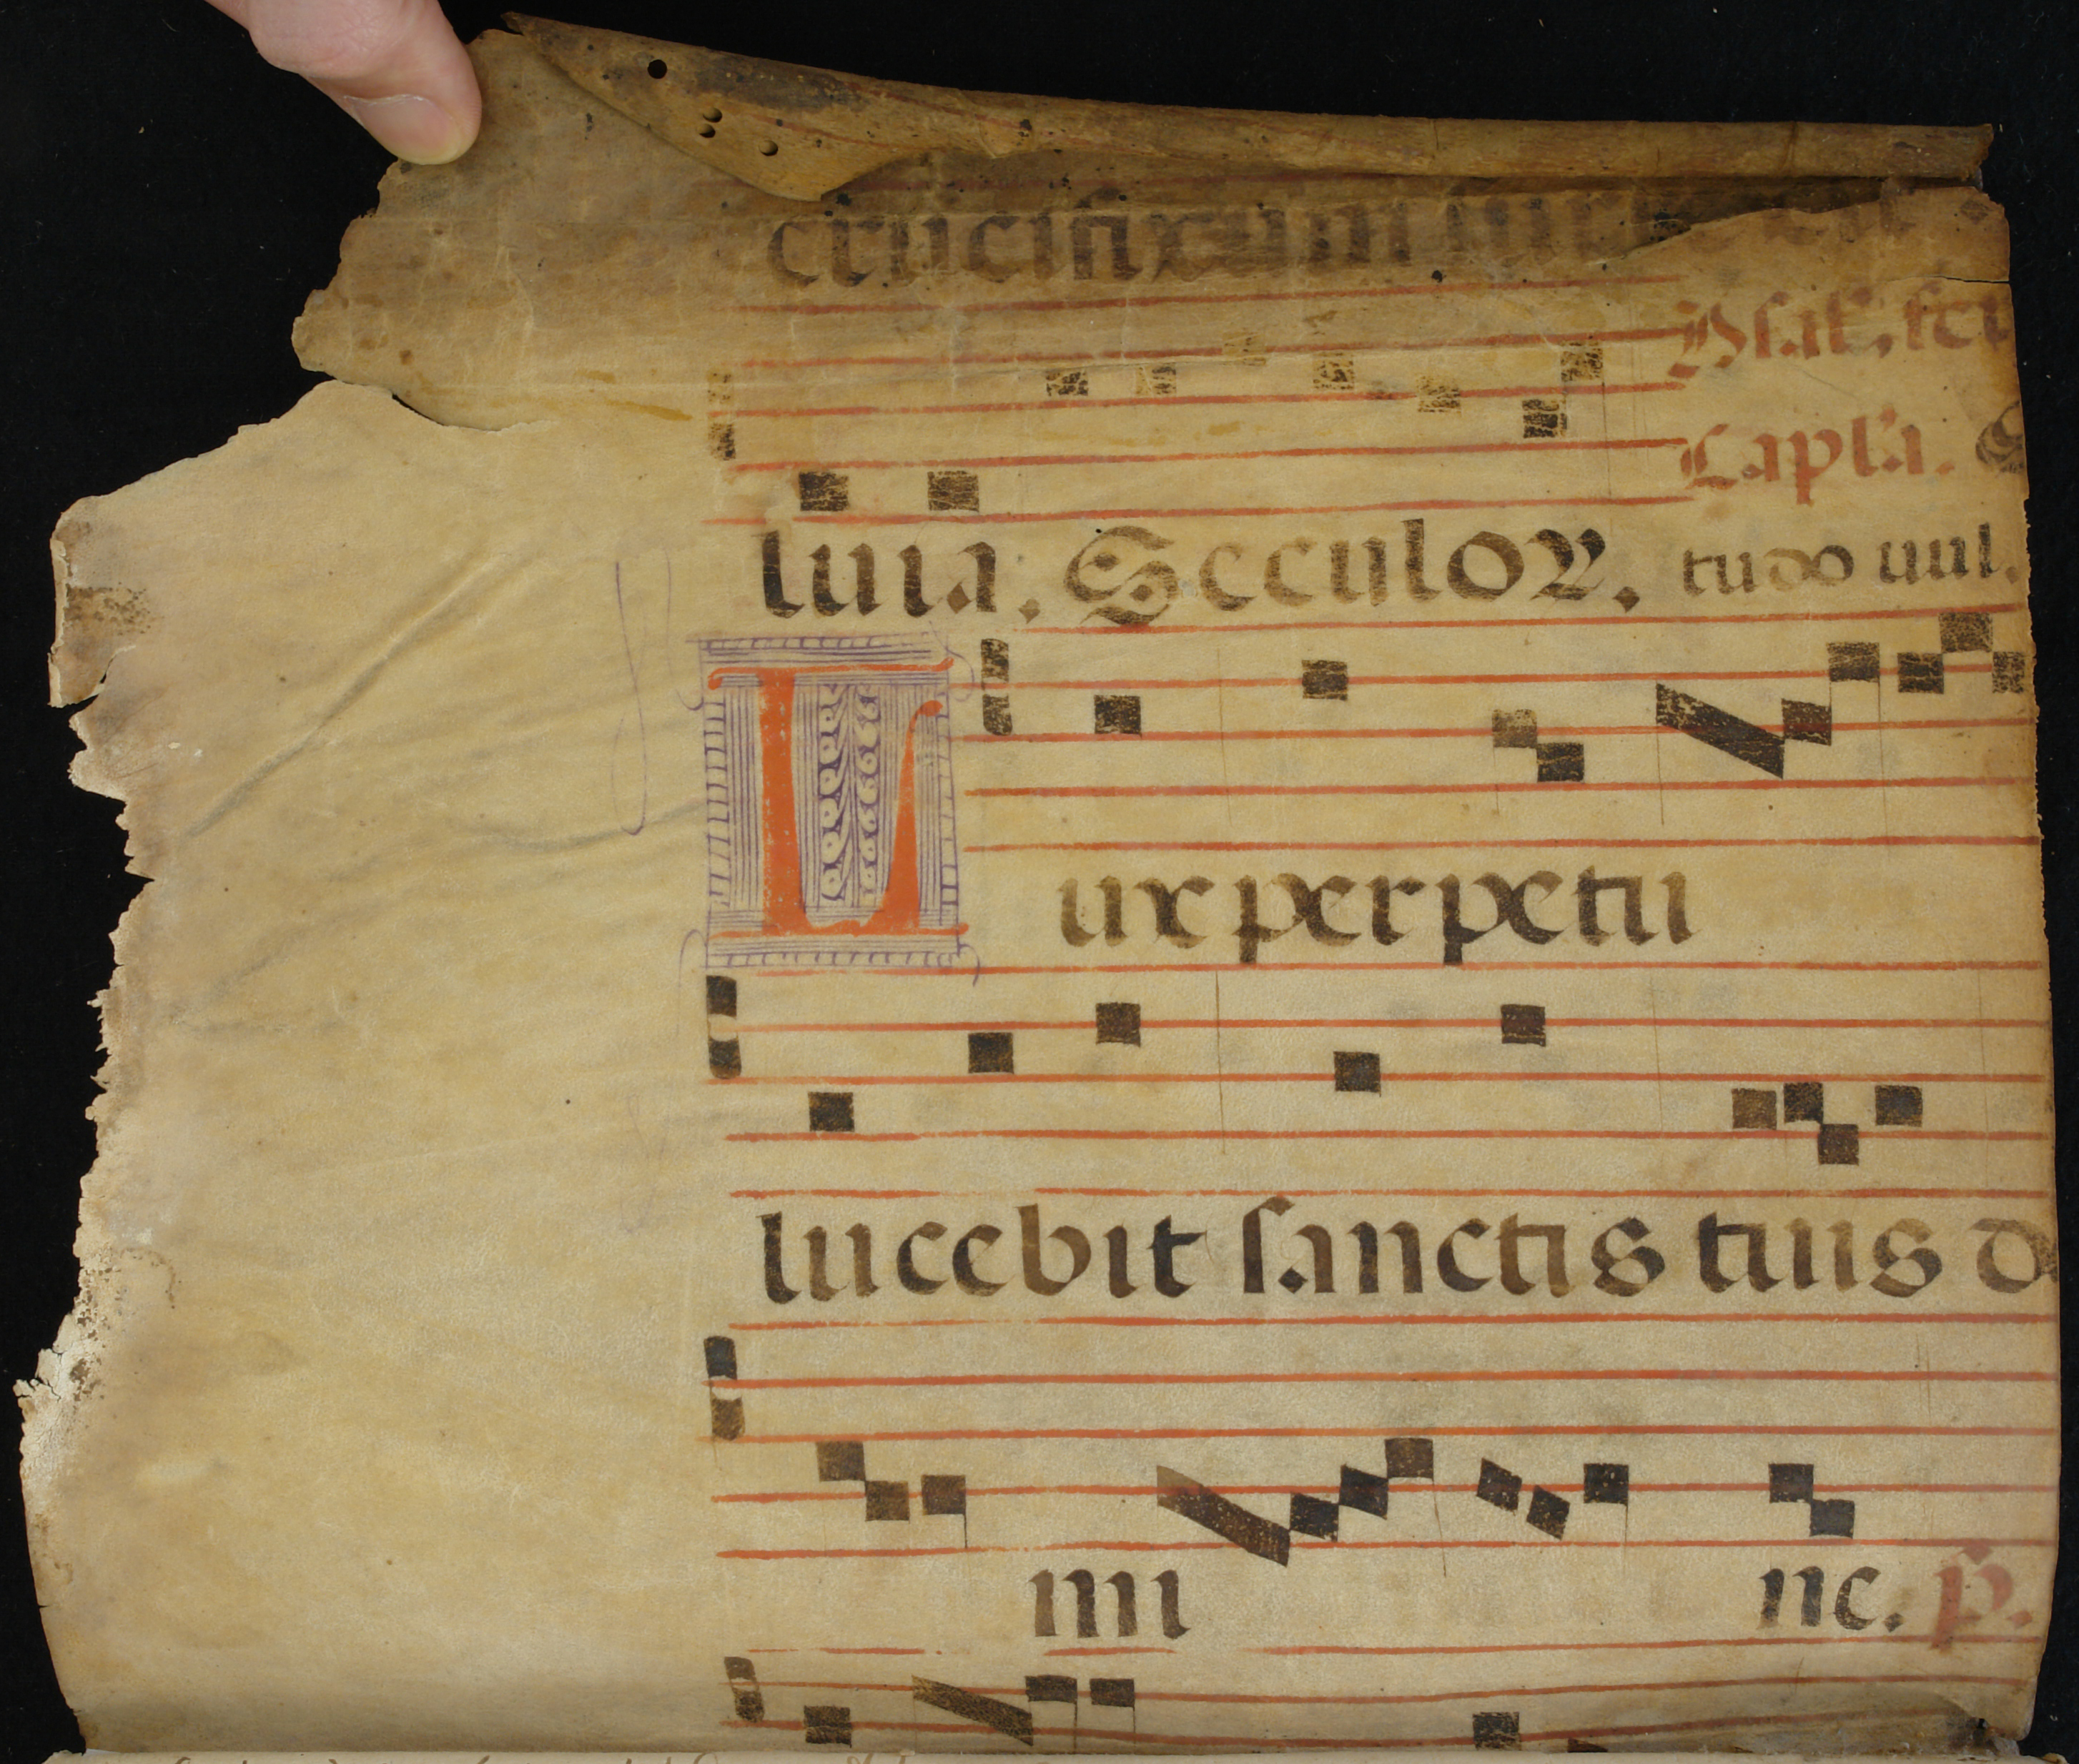 crucifixum
Psal.
Capl'a.
luia. Seculoꝝ. tudo uul.
Lux perpetu
lucebit sanctis tuis do
mi ne. p.